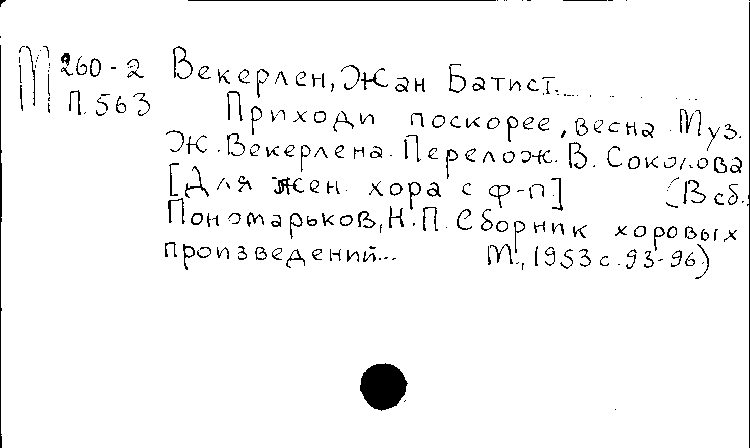 М 260-2 Векерлен, Жан Батист.
П.563 Приходи поскорее, весна. Муз.
Ж. Векерлена. Перелож. В. Соколова
[Для жен. хора с ф-п] (В сб.:
Пономарьков, И.П. Сборник хоровых
произведений... М., 1953 с. 93-96.)